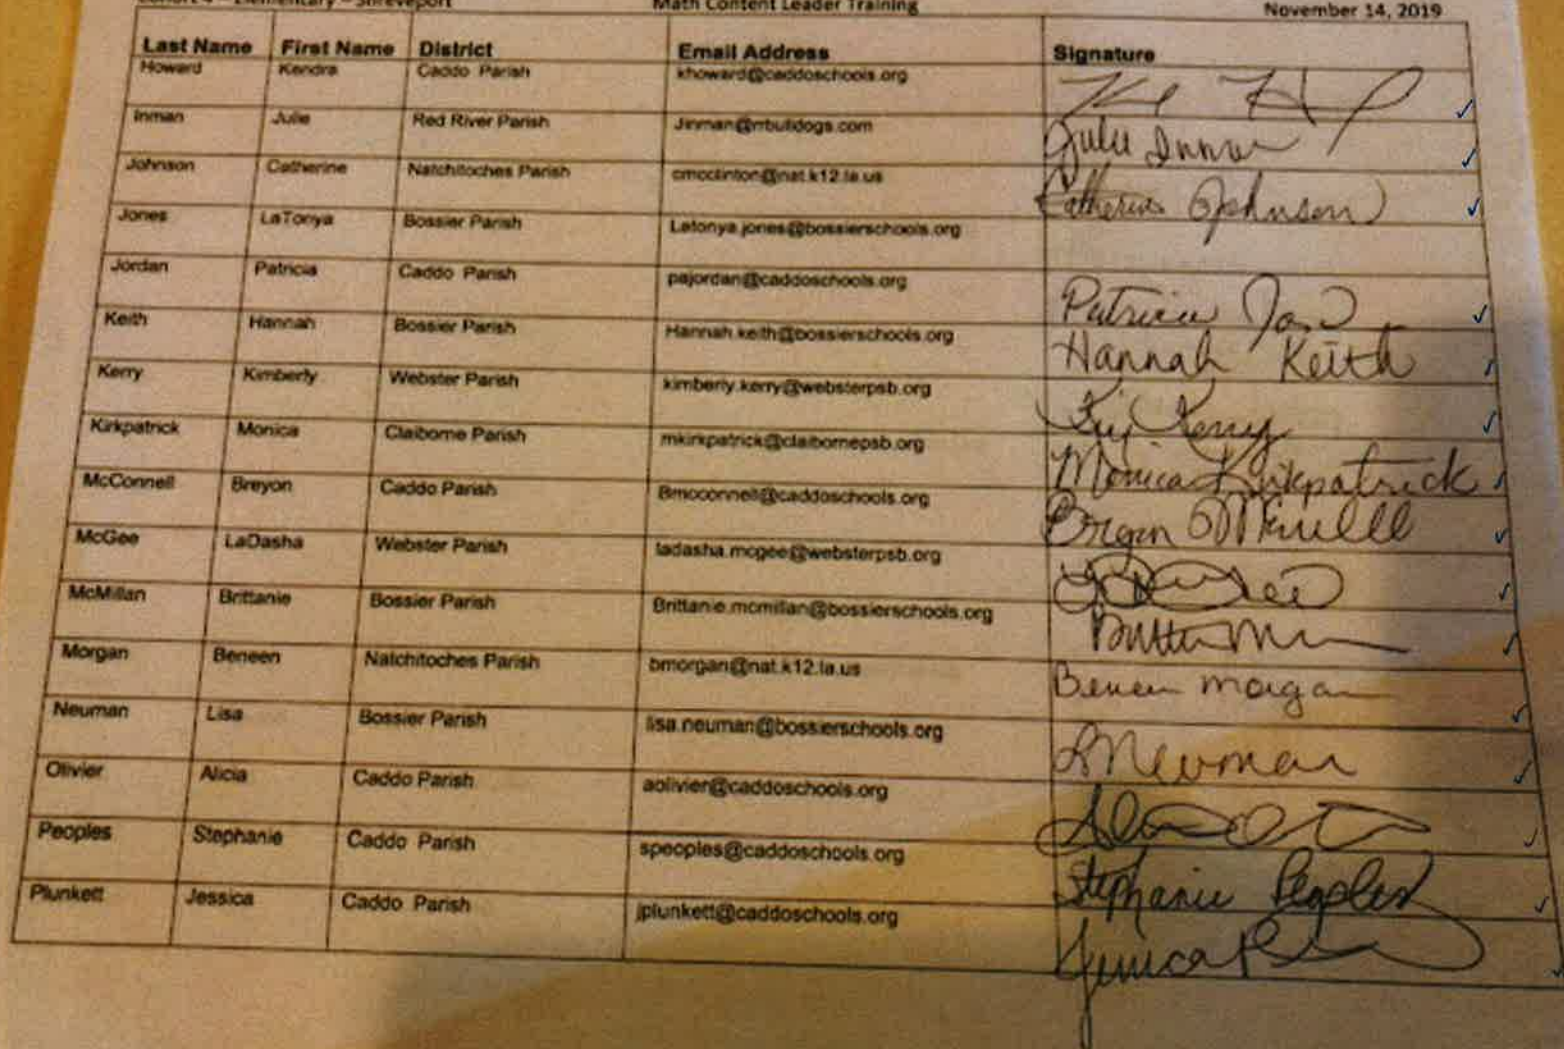 Cohort 4 – Elementary – Shreveport Math Content Leader Training November 14, 2019
Last Name First Name District Email Address Signature
Howard Kendra Caddo Parish khoward@caddoschools.org
Inman Julie Red River Parish Jinman@rrbulldogs.com Julie Inman
Johnson Catherine Natchitoches Parish cmcclinton@nat.k12.la.us Catherine Johnson
Jones LaTonya Bossier Parish Latonya.jones@bossierschools.org
Jordan Patricia Caddo Parish pajordan@caddoschools.org Patricia
Keith Hannah Bossier Parish Hannah.keith@bossierschools.org Hannah Keith
Kerry Kimberly Webster Parish kimberly.kerry@websterpsb.org Kerry
Kirkpatrick Monica Claiborne Parish mkirkpatrick@claibornepsb.org Monica Kirkpatrick
McConnell Breyon Caddo Parish Bmcconnell@caddoschools.org
McGee LaDasha Webster Parish ladasha.mcgee@websterpsb.org
McMillan Brittanie Bossier Parish Brittanie.mcmillan@bossierschools.org
Morgan Beneen Natchitoches Parish bmorgan@nat.k12.la.us Beneen Morgan
Neuman Lisa Bossier Parish lisa.neuman@bossierschools.org LNeuman
Olivier Alicia Caddo Parish aolivier@caddoschools.org
Peoples Stephanie Caddo Parish speoples@caddoschools.org Stephanie Peoples
Plunkett Jessica Caddo Parish jplunkett@caddoschools.org Jessica